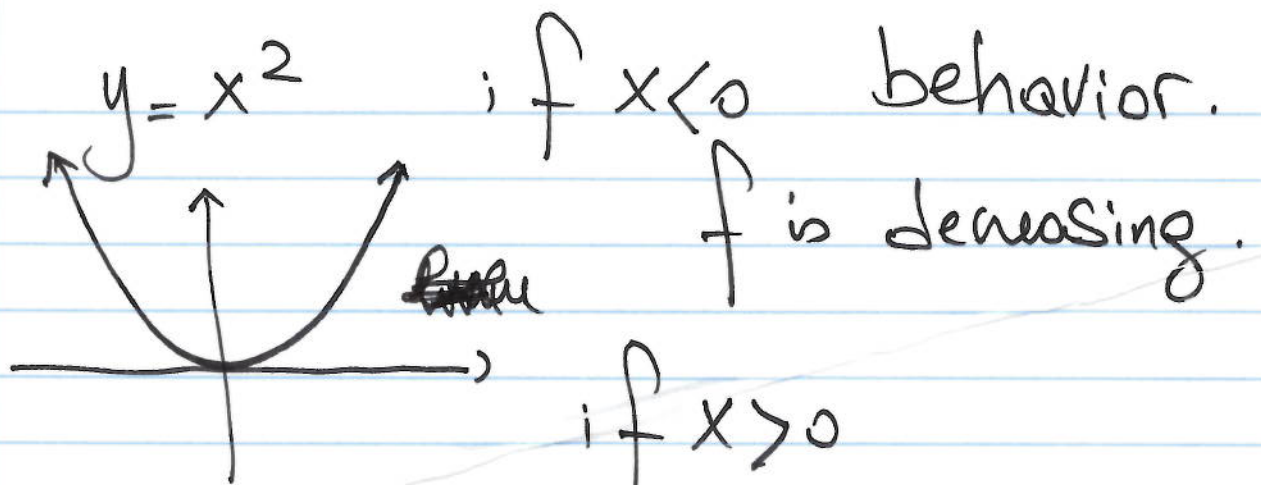 y = x² if x<0 behavior.
f is decreasing.
if x>0